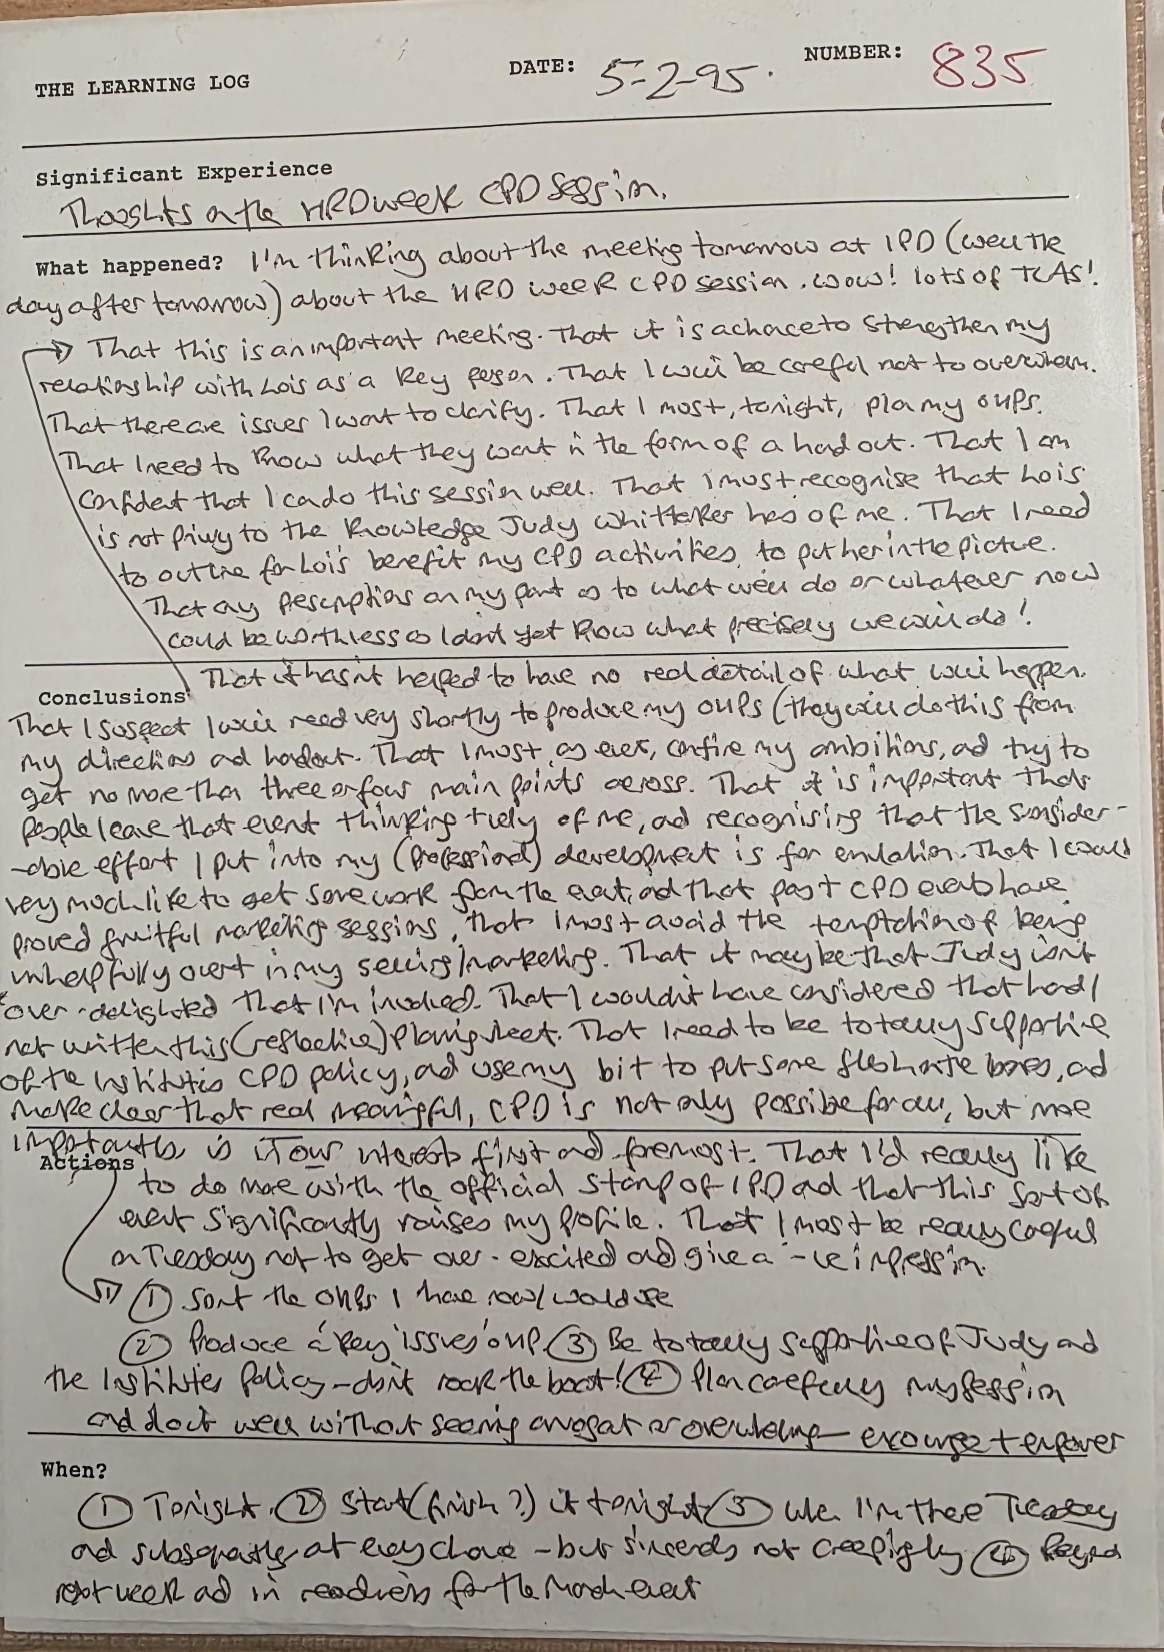 THE LEARNING LOG DATE: 5-2-95. NUMBER: 835
Significant Experience
Thoughts on the HRD week CPD session.
What happened? I'm thinking about the meeting tomorrow at IPD (well the
day after tomorrow) about the HRD week CPD session. Wow! lots of TLAS!
That this is an important meeting. That it is a chance to strengthen my
relationship with Lois as a key person. That I will be careful not to overwhelm.
That there are issues I want to clarify. That I must, tonight, plan my OHPs.
That I need to know what they want in the form of a hand out. That I am
confident that I can do this session well. That I must recognise that Lois
is not privy to the knowledge Judy Whittaker has of me. That I need
to outline for Lois' benefit my CPD activities, to put her in the picture.
That any on my part as to what we'll do or whatever now
could be worthless as I don't yet know what precisely we will do!
That it hasn't helped to have no real detail of what will happen.
Conclusions
That I suspect I will need very shortly to produce my OHPs (they will do this from
my directions and handout. That I must, as ever, confine my ambitions, and try to
get no more than three or four main points across. That it is important that
people leave that event thinking of me, and recognising that the consider-
-able effort I put into my (professional) development is for emulation. That I would
very much like to get some work from the event, and that past CPD events have
proved fruitful marketing sessions, that I must avoid the temptation of being
unhelpfully overt in my selling/marketing. That it may be that Judy isn't
over-delighted that I'm involved. That I wouldn't have considered that had I
not written this (reflective) planning sheet. That I need to be totally supportive
of the Institute's CPD policy, and use my bit to put some flesh on the bones, and
make clear that real meaningful, CPD is not only possible for all, but more
importantly, is in our interests first and foremost. That I'd really like
Actions
to do more with the official stamp of IPD and that this sort of
event significantly raises my profile. That I must be really careful
on Tuesday not to get over-excited and give a -ve impression.
① Sort the OHPs I have now/would use
② Produce a 'key issues' OHP. ③ Be totally supportive of Judy and
the Institute's Policy - don't rock the boat! ④ Plan carefully my session
and do it well without seeming arrogant or overwhelming - encourage + empower
When?
① Tonight. ② Start (finish?) it tonight ③ When I'm there Tuesday
and subsequently at every chance - but sincerely not creepingly ④
next week and in readiness for the March event